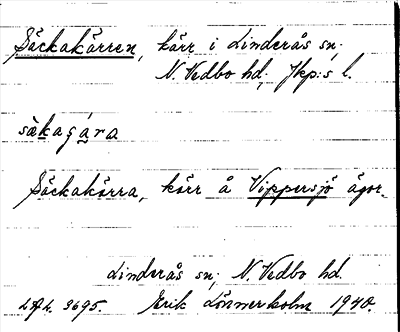 Säckakärren, kärr i Linderås sn;
N. Vedbo hd; Jkp:s l.
säkaʒára
Säckakärra, kärr å Vippersjö ägor.
Linderås sn; N. Vedbo hd.
3695. Erik Lönnerholm 1940.